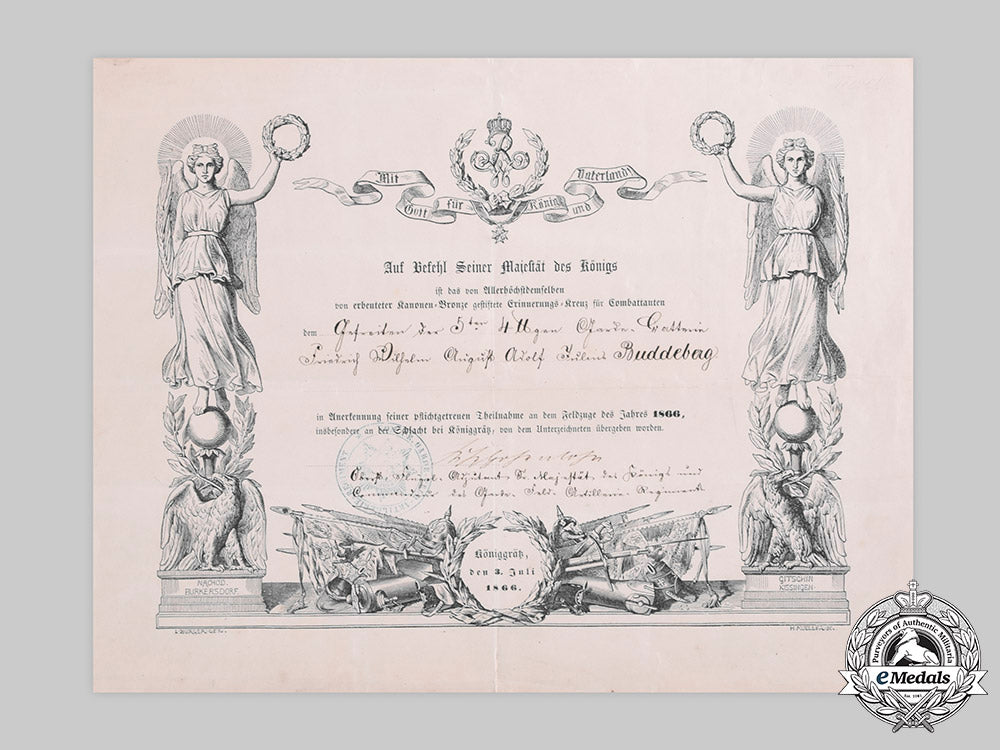 Mit Gott für König und Vaterland
Auf Befehl Seiner Majestät des Königs
ist das von Allerhöchstdemselben
von erbeuteter Kanonen-Bronze gestiftete Erinnerungs-Kreuz für Combattanten
dem Gefreiten der 5ten 4 Garde-Batterie
Friedrich Wilhelm August Adolf Julius Buddeberg
in Anerkennung seiner pflichtgetreuen Theilnahme an dem Feldzuge des Jahres 1866,
insbesondere an der Schlacht bei Königgrätz, von dem Unterzeichneten übergeben worden.
Oberst, Flügel-Adjutant Sr. Majestät des Königs und
Commandeur des Garde-Feld-Artillerie-Regiments
Königgrätz,
den 3. Juli
1866.
NACHOD.
BURKERSDORF.
GITSCHIN
KISSINGEN
Purveyors of Authentic Militaria
eMedals